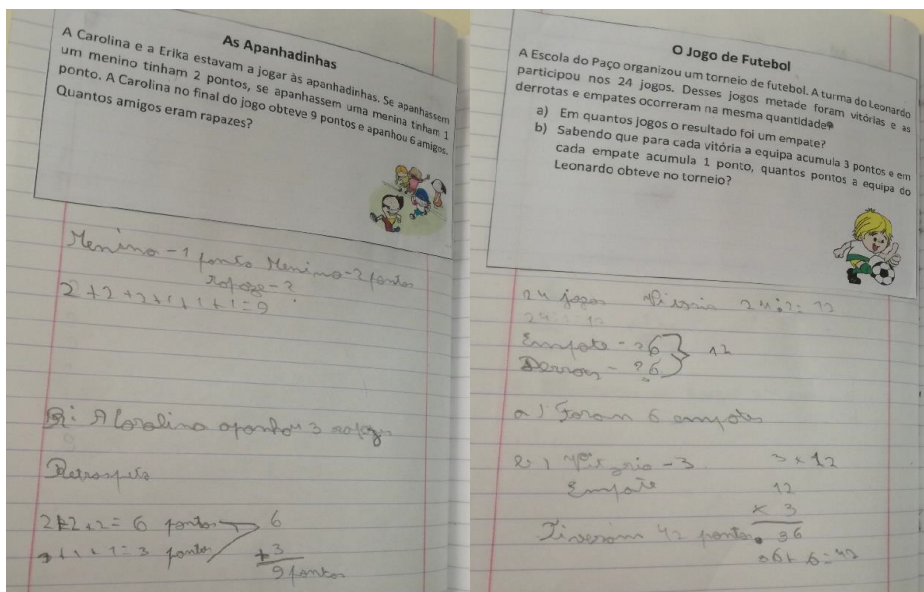 As Apanhadinhas
A Carolina e a Erika estavam a jogar às apanhadinhas. Se apanhassem
um menino tinham 2 pontos, se apanhassem uma menina tinham 1
ponto. A Carolina no final do jogo obteve 9 pontos e apanhou 6 amigos.
Quantos amigos eram rapazes?
Menina - 1 ponto Menino - 2 pontos
rapaze - ?
2 + 2 + 2 + 1 + 1 + 1 = 9
R: A Carolina apanhou 3 rapazes
2 + 2 + 2 = 6 pontos 6
+ 1 + 1 = 3 pontos + 3
9 pontos
O Jogo de Futebol
A Escola do Paço organizou um torneio de futebol. A turma do Leonardo
participou nos 24 jogos. Desses jogos metade foram vitórias e as
derrotas e empates ocorreram na mesma quantidade
a) Em quantos jogos o resultado foi um empate?
b) Sabendo que para cada vitória a equipa acumula 3 pontos e em
cada empate acumula 1 ponto, quantos pontos a equipa do
Leonardo obteve no torneio?
24 jogos Vitoria 24:2= 12
24:2=12
Empate - ? 6 } 12
- ? 6
a) Foram 6 empates
b) - 3 3 x 12
Empate 12
x 3
Tiveram 42 pontos. 36
36+ 6=42